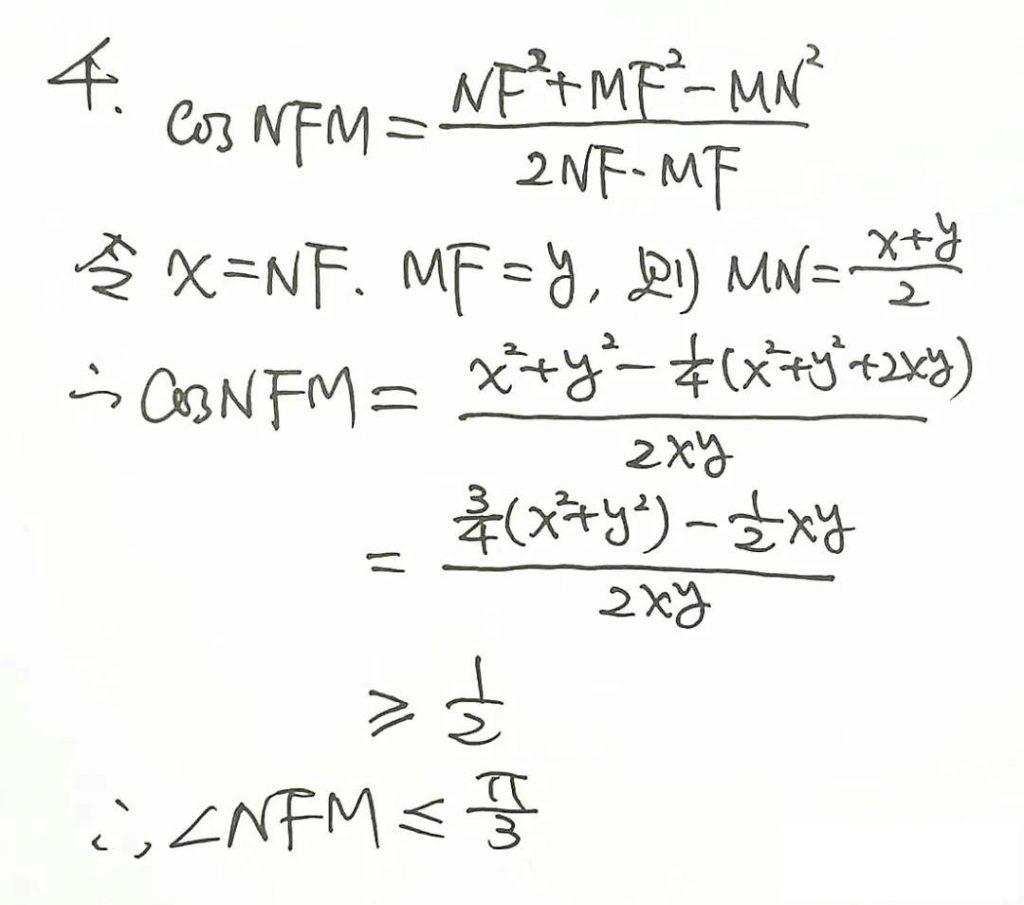 4. cos NFM = (NF²+MF²-MN²)/(2NF·MF)
令 x=NF. MF=y, 则 MN=(x+y)/2
∴ cosNFM = (x²+y²-1/4(x²+y²+2xy))/(2xy)
= (3/4(x²+y²)-1/2xy)/(2xy)
≥ 1/2
∴, ∠NFM ≤ π/3